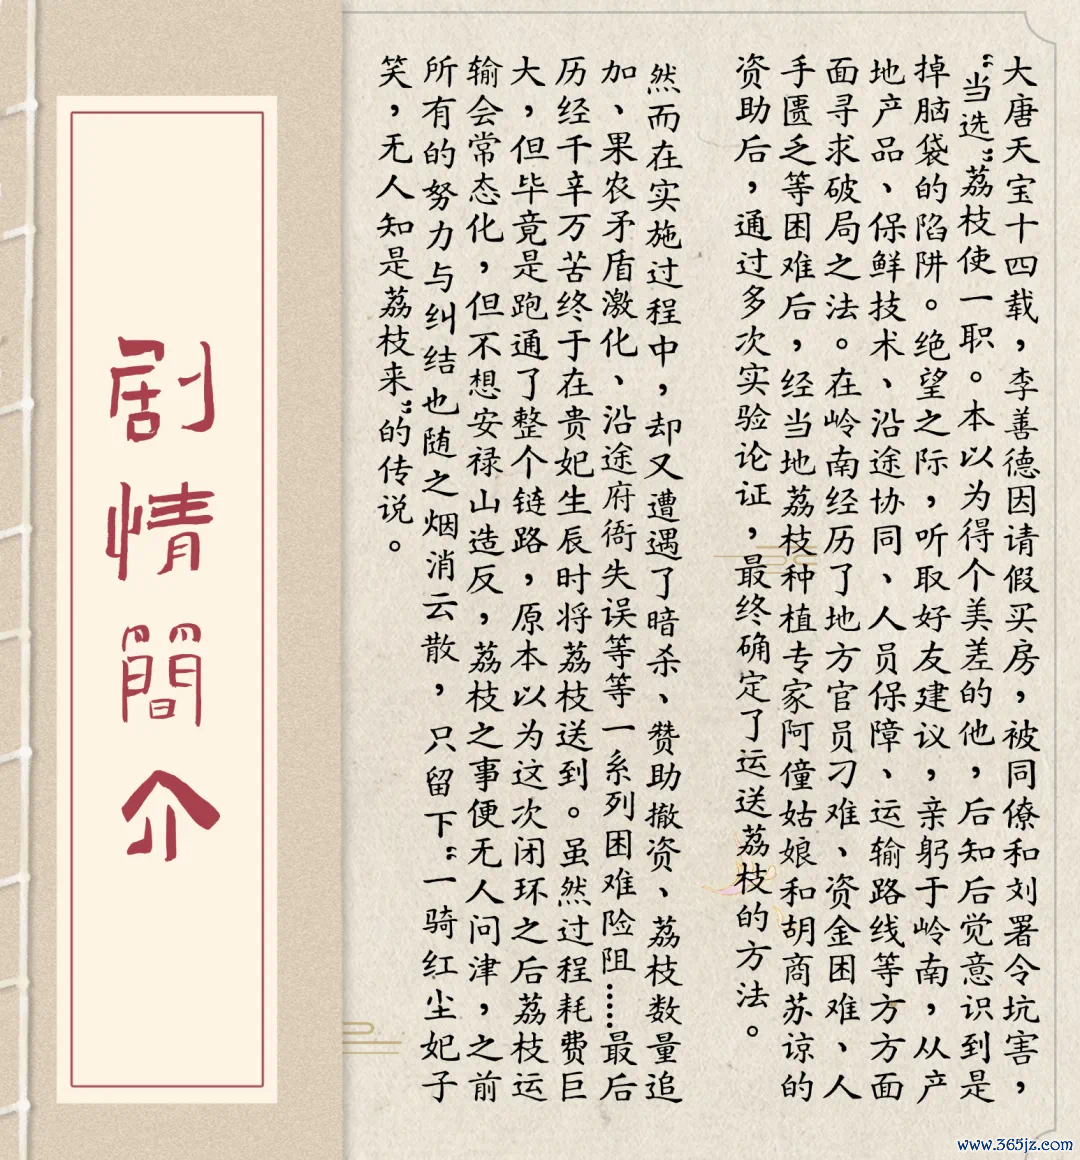 剧情簡介
大唐天宝十四载，李善德因请假买房，被同僚和刘署令坑害，
“当选”荔枝使一职。本以为得个美差的他，后知后觉意识到是
掉脑袋的陷阱。绝望之际，听取好友建议，亲躬于岭南，从产
地产品、保鲜技术、沿途协同、人员保障、运输路线等方方面
面寻求破局之法。在岭南经历了地方官员刁难、资金困难、人
手匮乏等困难后，经当地荔枝种植专家阿僮姑娘和胡商苏谅的
资助后，通过多次实验论证，最终确定了运送荔枝的方法。
然而在实施过程中，却又遭遇了暗杀、赞助撤资、荔枝数量追
加、果农矛盾激化、沿途府衙失误等等一系列困难险阻……最后
历经千辛万苦终于在贵妃生辰时将荔枝送到。虽然过程耗费巨
大，但毕竟是跑通了整个链路，原本以为这次闭环之后荔枝运
输会常态化，但不想安禄山造反，荔枝之事便无人问津，之前
所有的努力与纠结也随之烟消云散，只留下“一骑红尘妃子
笑，无人知是荔枝来”的传说。
www.365jz.com